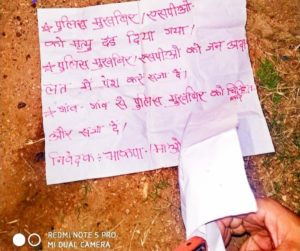 ★ पुलिस मुखबिर/एसपीओ
को मृत्यु दंड दिया गया!
★ पुलिस मुखबिर/एसपीओ को जन अदा
लत में पेश कर सजा दें!
★ गांव-गांव से पुलिस मुखबिर को चिन्हि
और सजा दें!
निवेदक:- भाकपा (माओ
REDMI NOTE 5 PRO
MI DUAL CAMERA